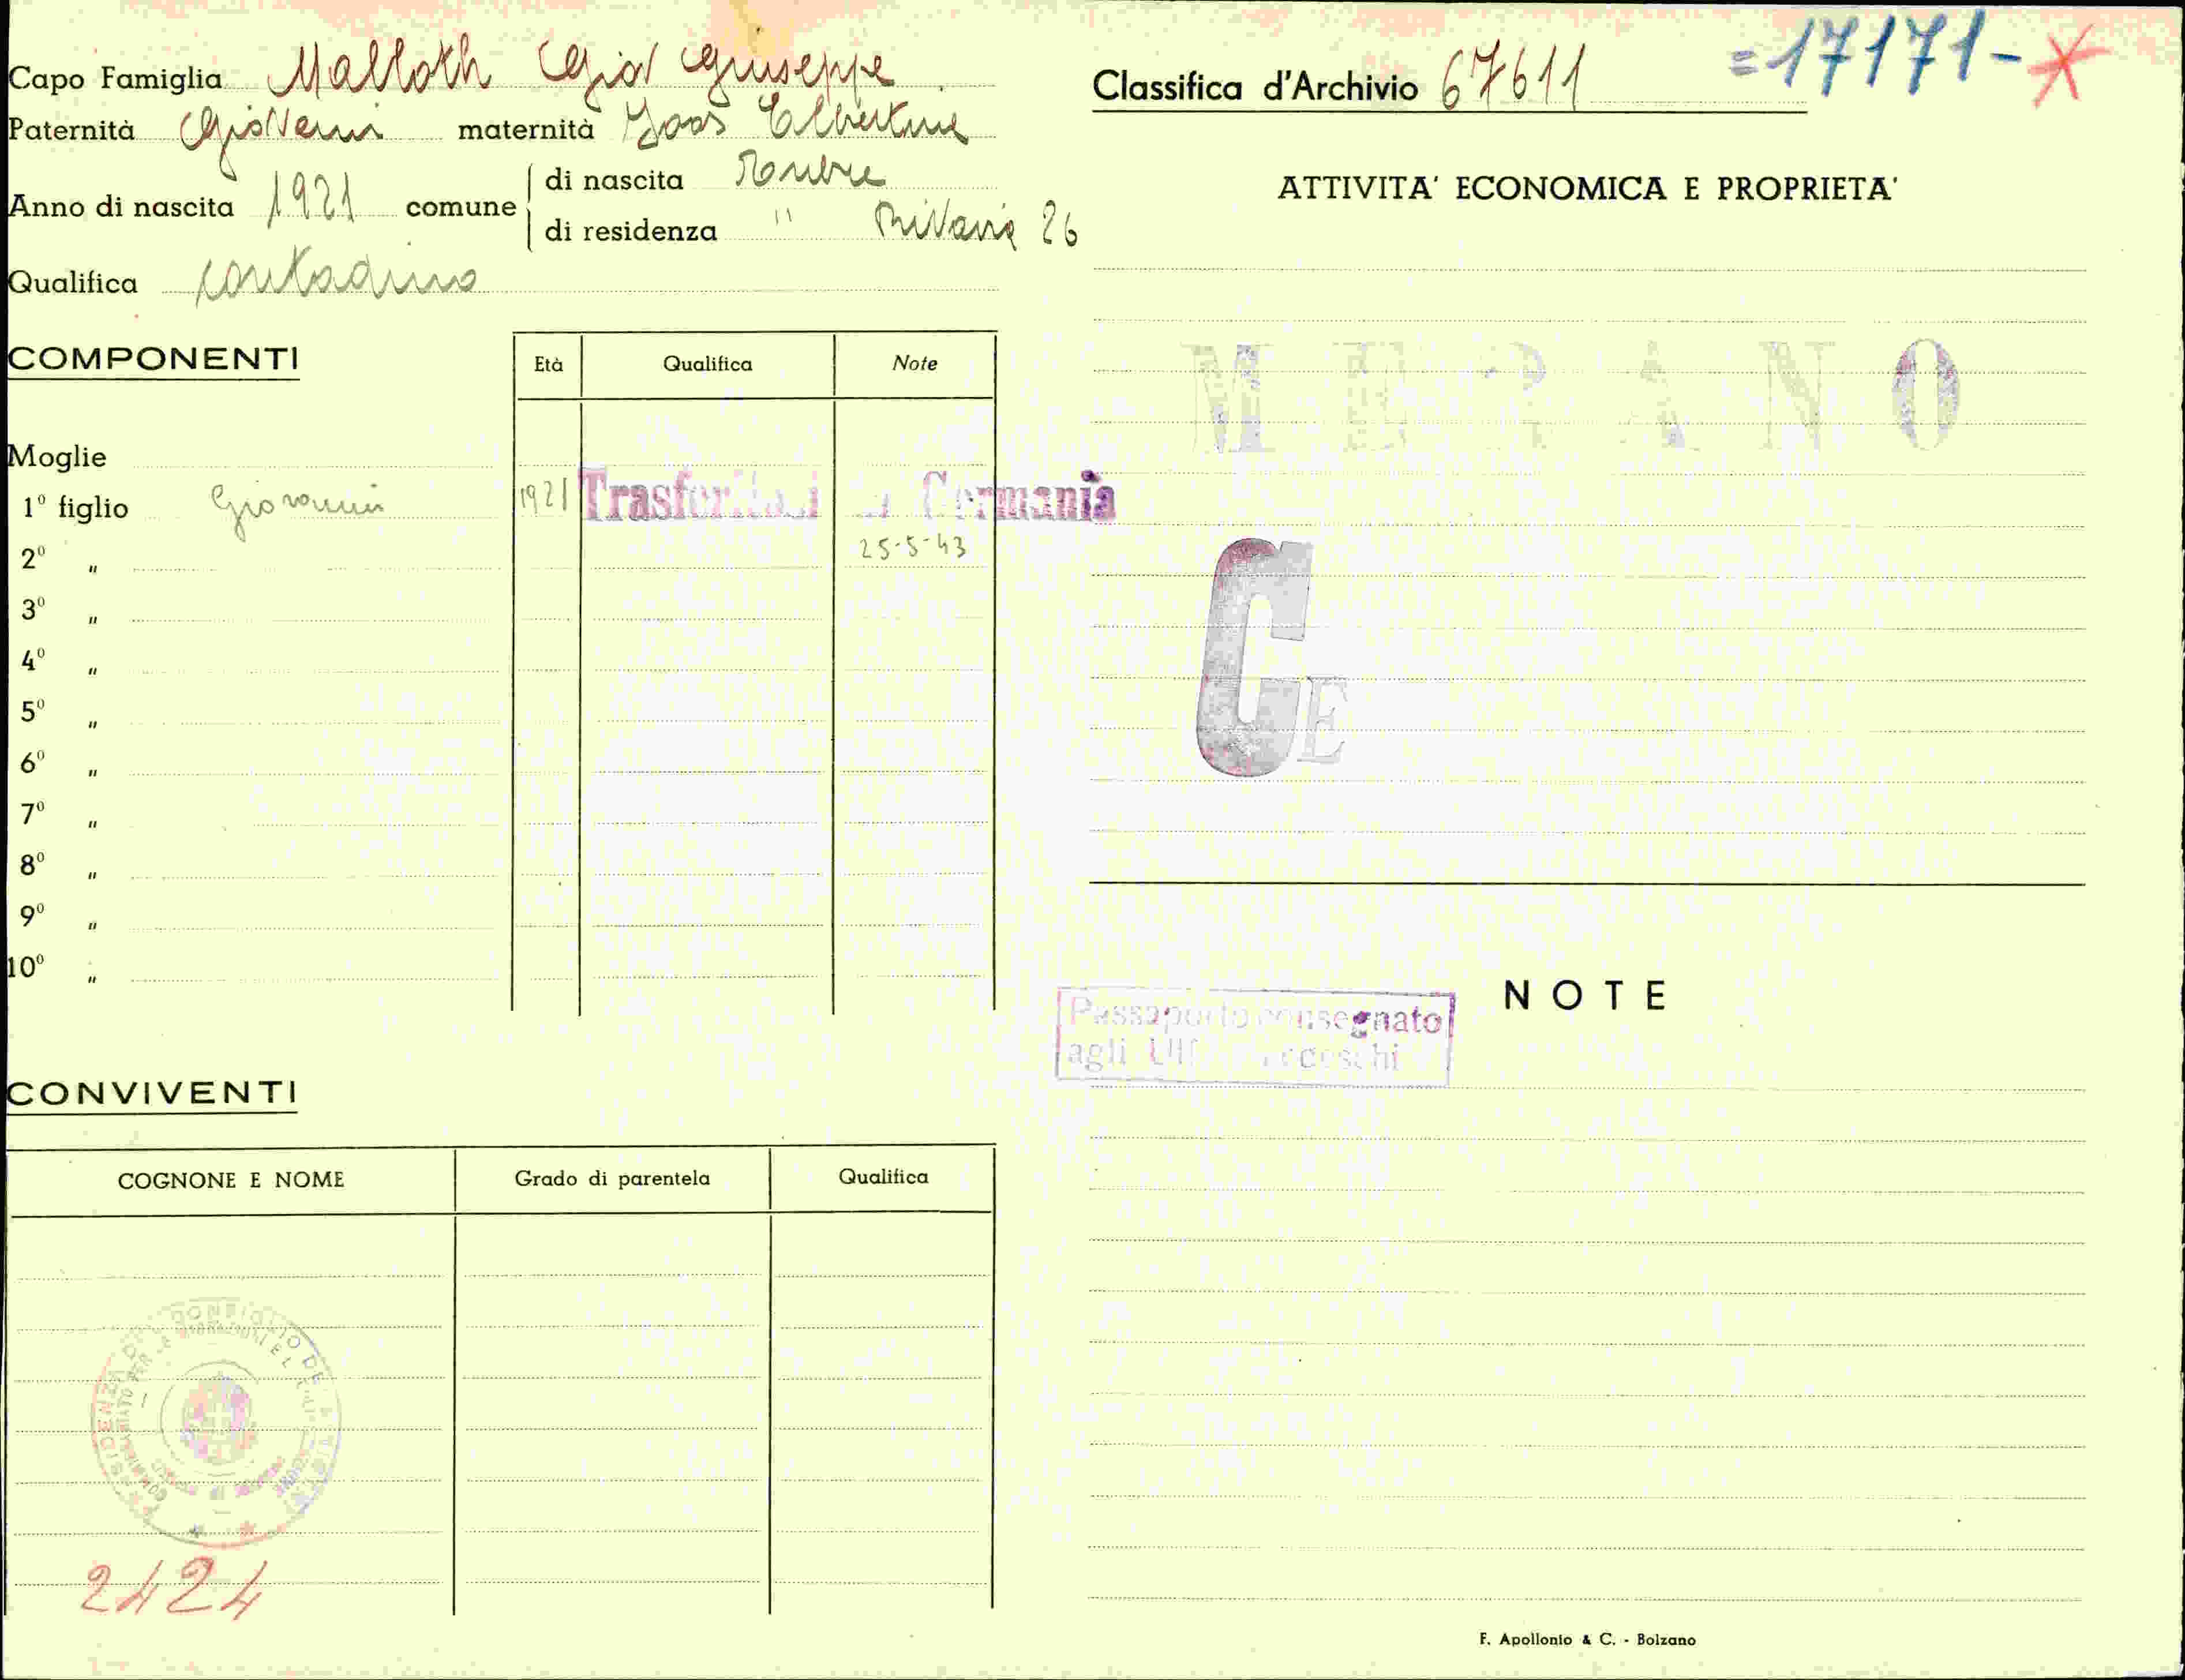 Capo Famiglia Malloth Gio Giuseppe
Paternità Giovanni maternità Joos Albertine
Anno di nascita 1921 comune di nascita Tubre
di residenza "
26
Qualifica contadino
COMPONENTI
Età Qualifica Note
Moglie
1° figlio Giovanni 1921 Trasferitosi in Germania
2° " 25-5-43
3° "
4° "
5° "
6° "
7° "
8° "
9° "
10° "
CONVIVENTI
COGNONE E NOME Grado di parentela Qualifica
2424
Classifica d'Archivio 67611 =17171-
ATTIVITA' ECONOMICA E PROPRIETA'
MERANO
CE
Passaporto consegnato
agli Uff. Tedeschi
NOTE
F. Apollonio & C. - Bolzano